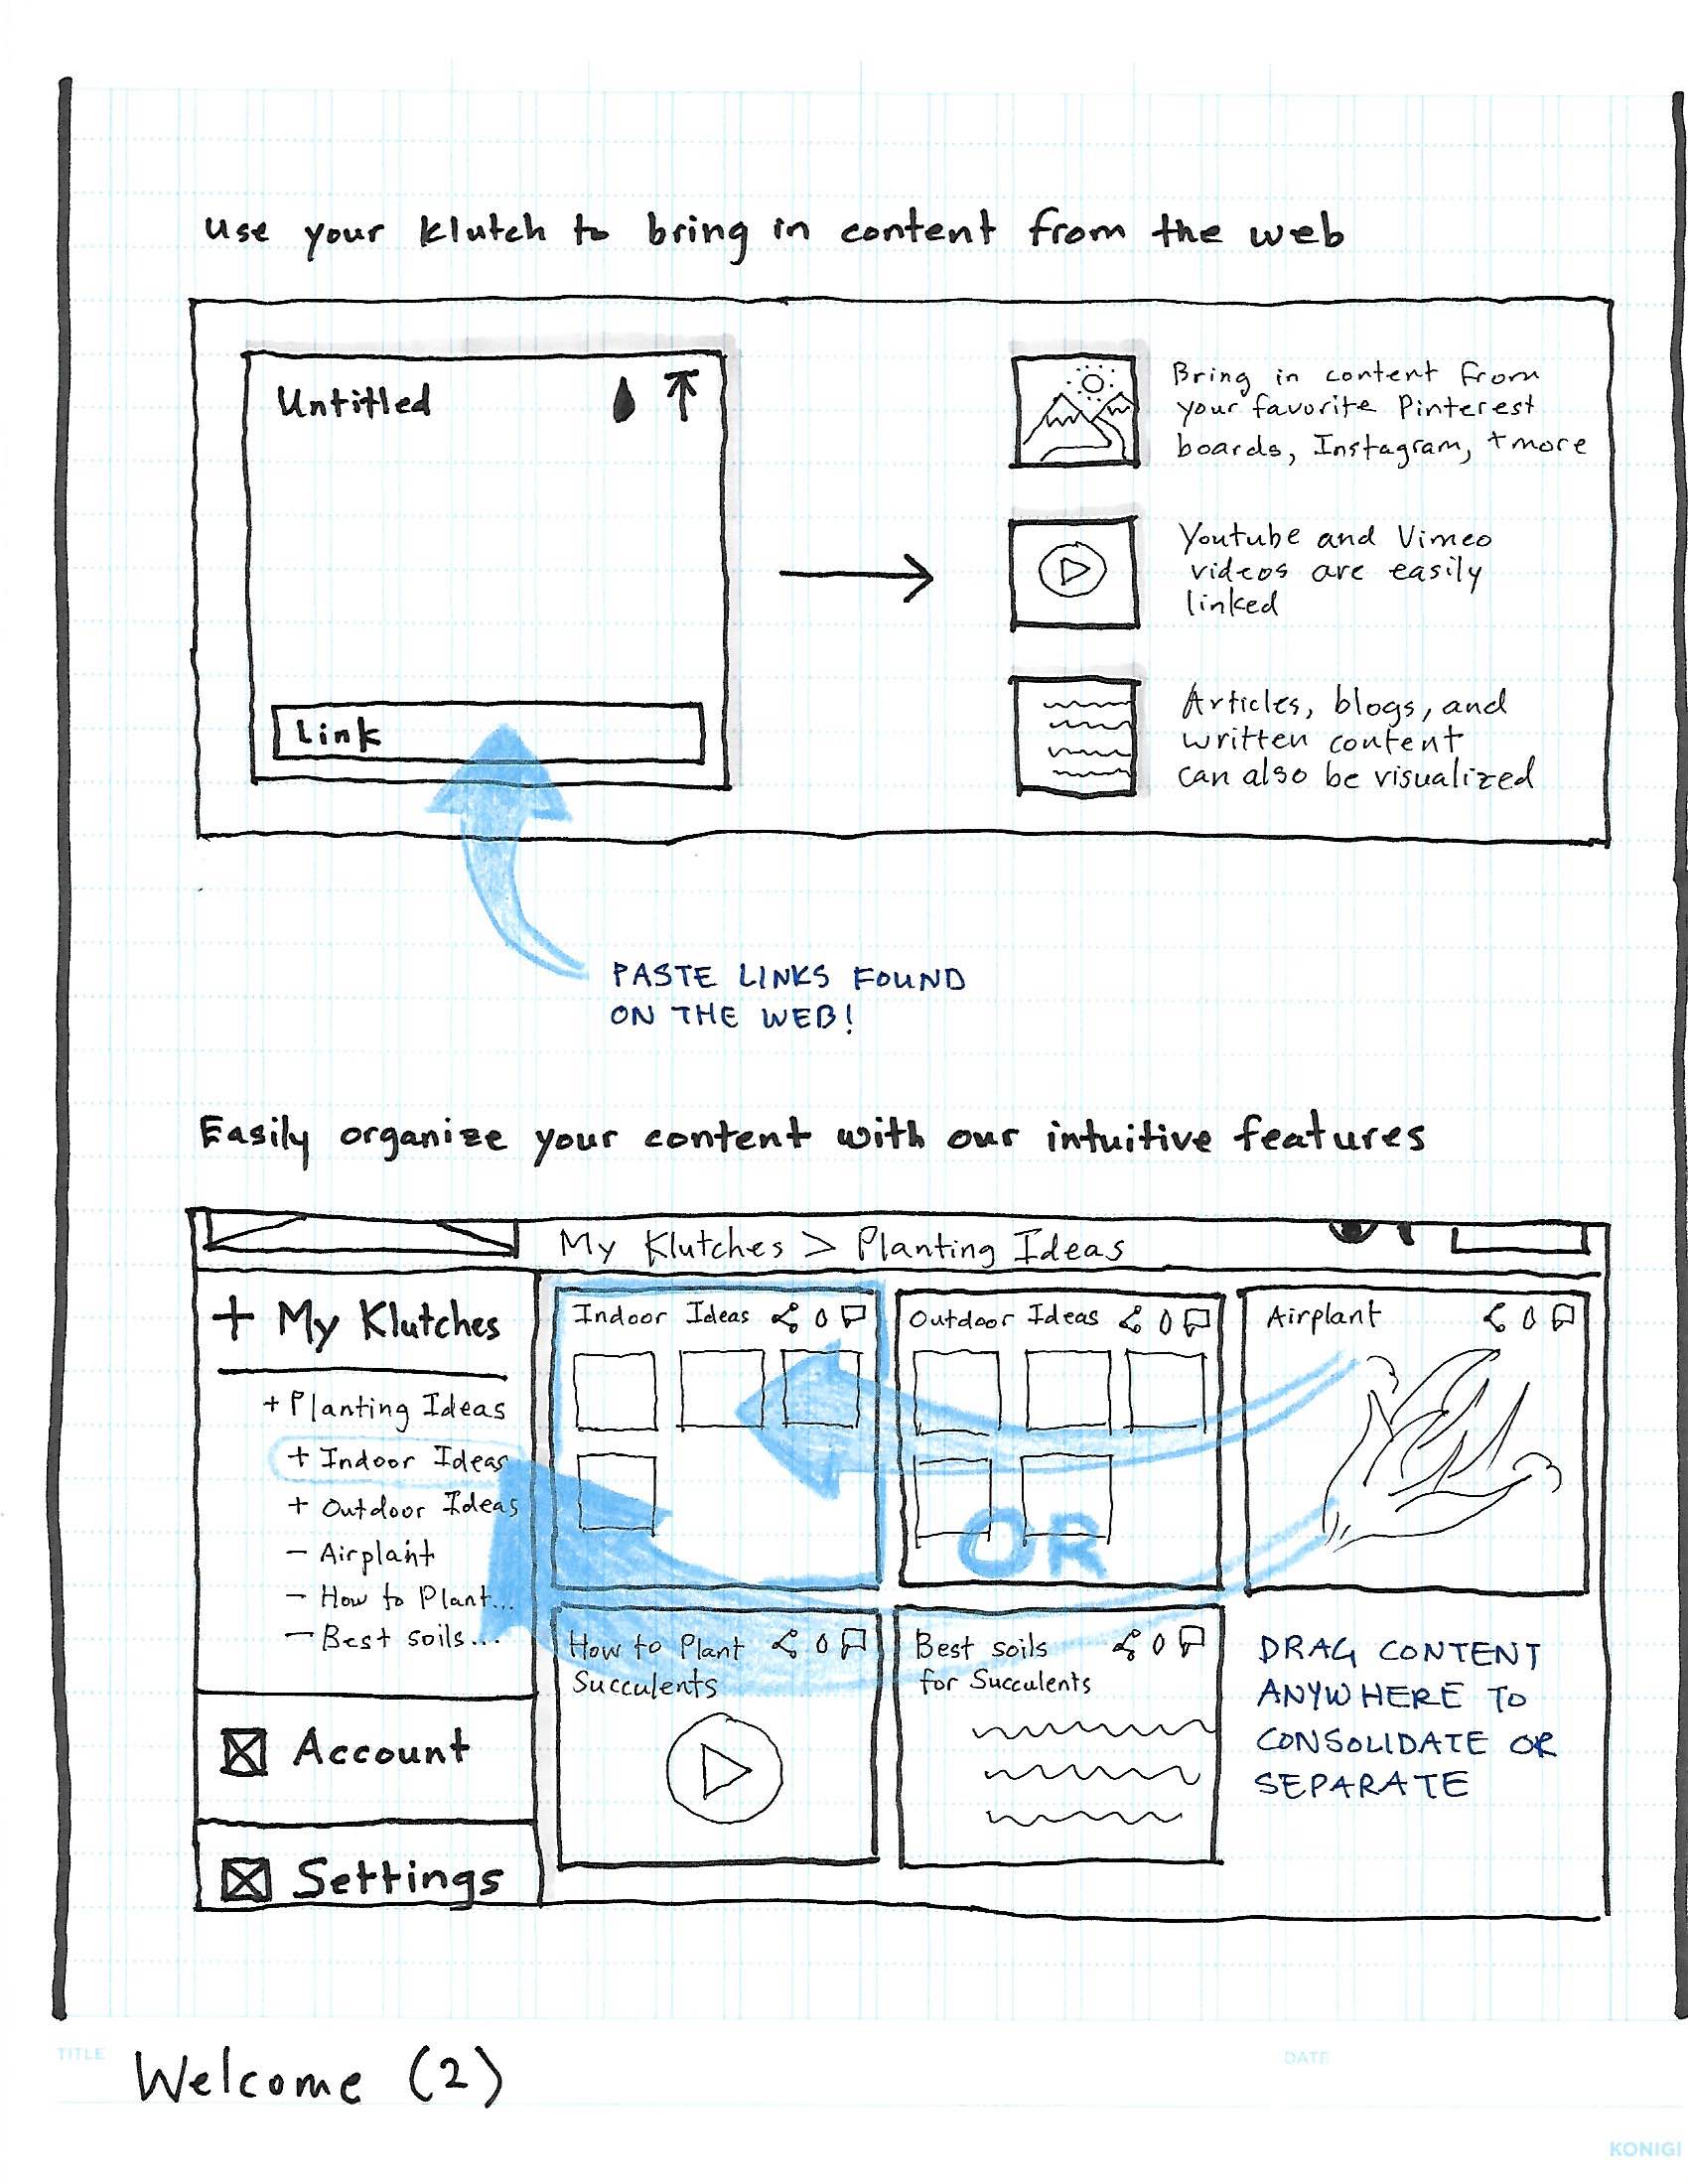 Use your Klutch to bring in content from the web
Untitled
Link
Bring in content from
your favorite Pinterest
boards, Instagram, + more
Youtube and Vimeo
videos are easily
linked
Articles, blogs, and
written content
can also be visualized
PASTE LINKS FOUND
ON THE WEB!
Easily organize your content with our intuitive features
My Klutches > Planting Ideas
+ My Klutches
+ Planting Ideas
+ Indoor Ideas
+ Outdoor Ideas
- Airplant
- How to Plant...
- Best soils...
Account
Settings
Indoor Ideas
Outdoor Ideas
Airplant
OR
How to Plant
Succulents
Best soils
for Succulents
DRAG CONTENT
ANYWHERE TO
CONSOLIDATE OR
SEPARATE
TITLE
Welcome (2)
DATE
KONIGI